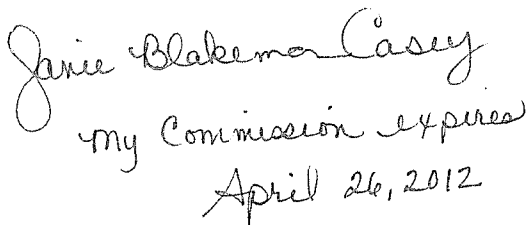 Janie Blakemon Casey
My Commission expires
April 26, 2012